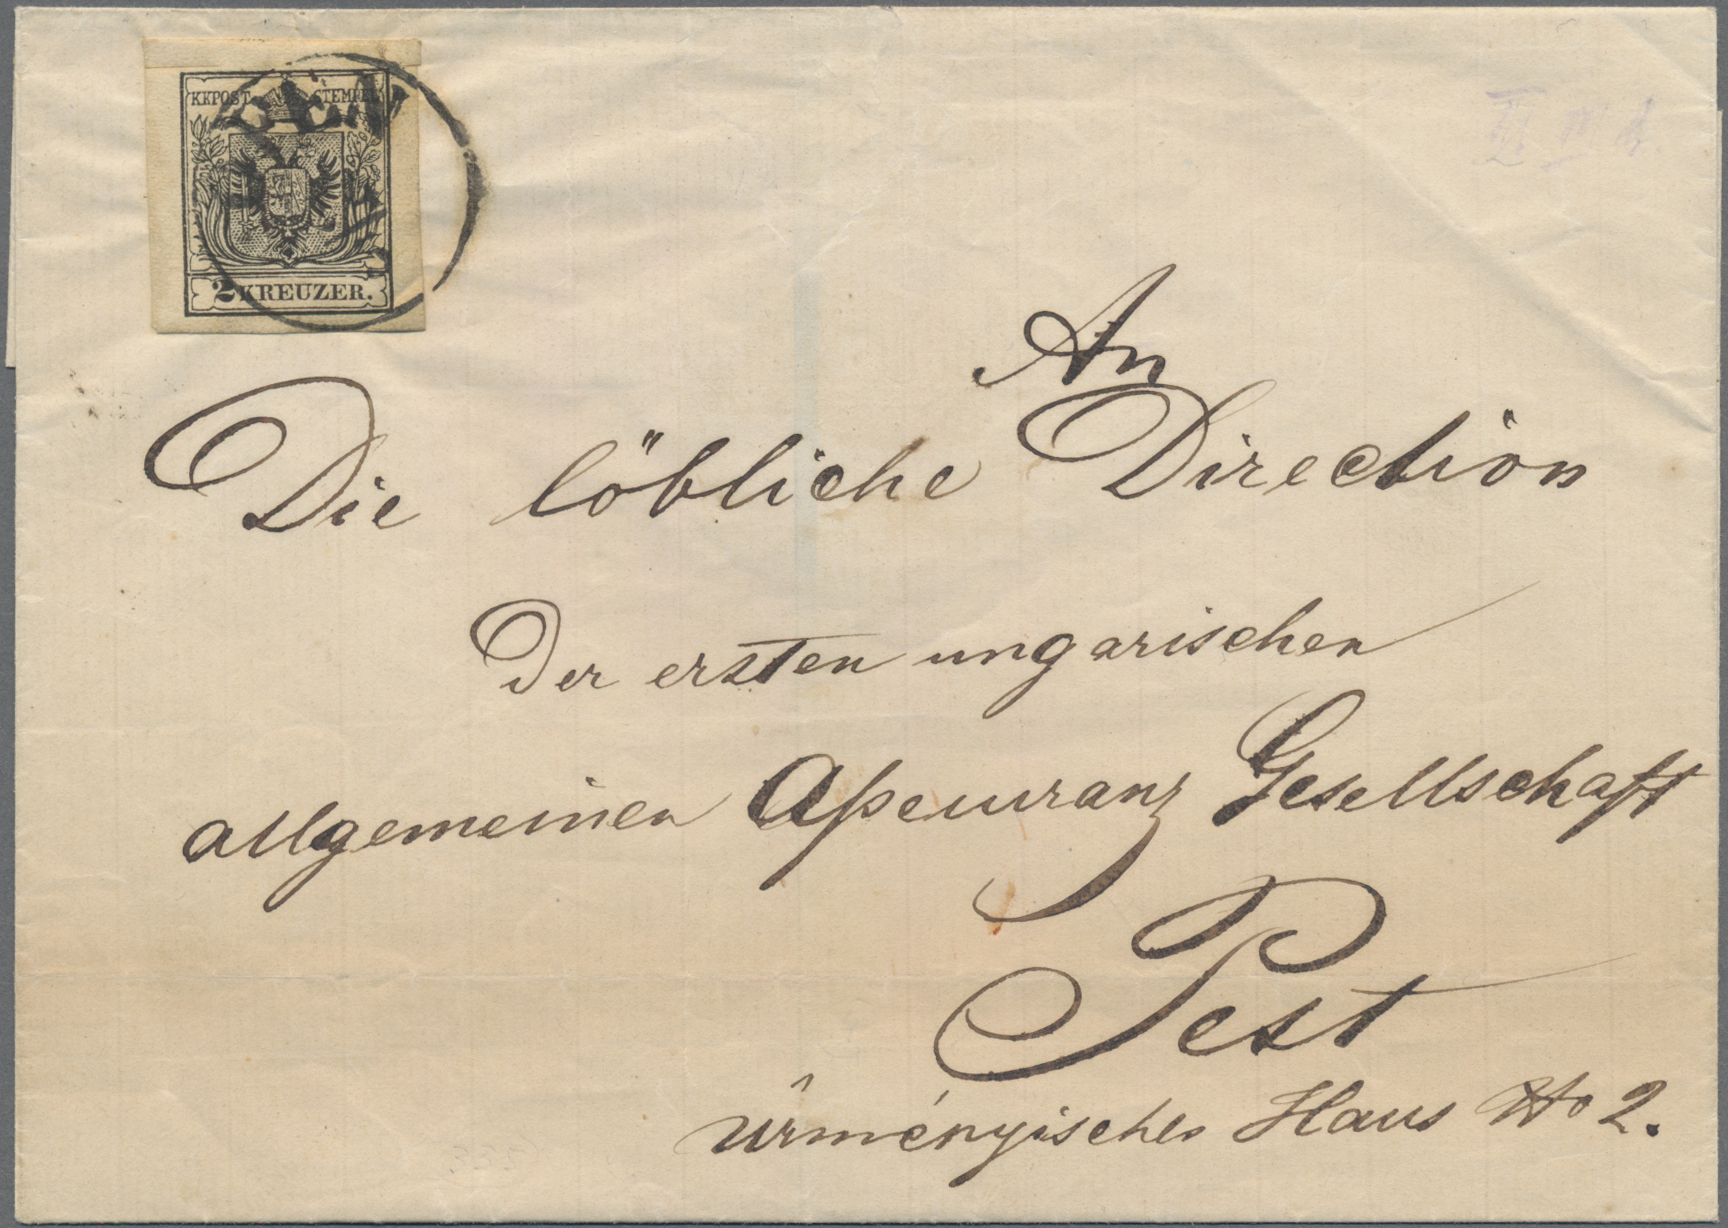 KKPOST STEMPEL
2 KREUZER.
An
Die löbliche Direction
Der ersten ungarischen
allgemeinen Aßecuranz Gesellschaft
Pest
ürményisches Haus No 2.